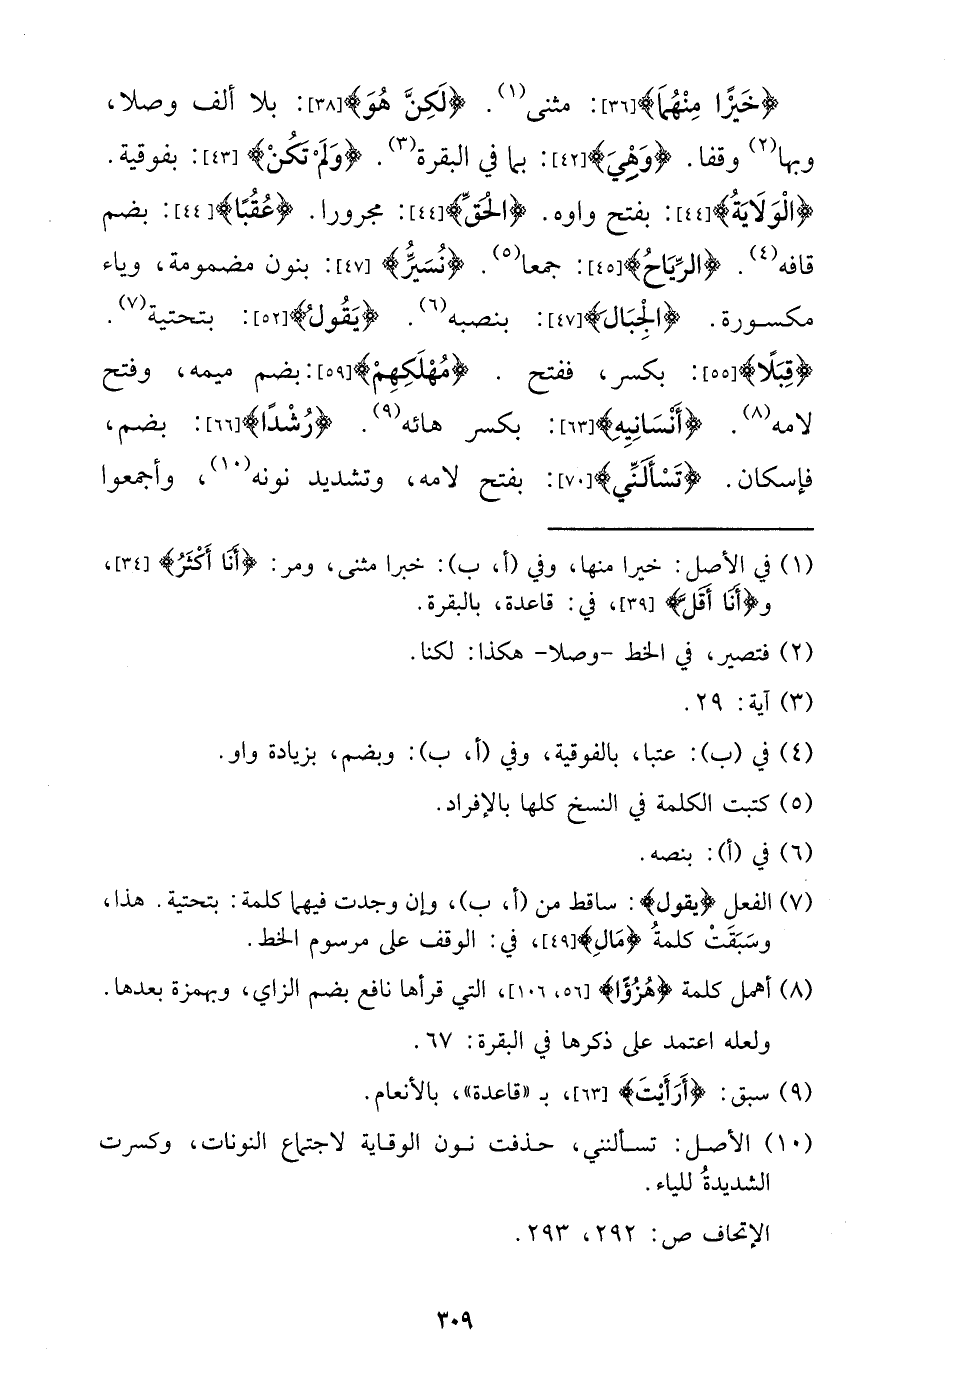 ﴿خَيْرًا مِنْهُمَا﴾[٣٦]: مثنى(١). ﴿لَكِنَّ هُوَ﴾[٣٨]: بلا ألف وصلا،
وبها(٢) وقفا. ﴿وَهْيَ﴾[٤٢]: بما في البقرة(٣). ﴿وَلَمْ تَكُنْ﴾ [٤٣]: بفوقية.
﴿الْوَلَايَةُ﴾[٤٤]: بفتح واوه. ﴿الْحَقِّ﴾[٤٤]: مجرورا. ﴿عُقُبًا﴾[٤٤]: بضم
قافه(٤). ﴿الرِّيَاحُ﴾[٤٥]: جمعا(٥). ﴿نُسَيِّرُ﴾ [٤٧]: بنون مضمومة، وياء
مكسورة. ﴿الْجِبَالَ﴾[٤٧]: بنصبه(٦). ﴿يَقُولُ﴾[٥٢]: بتحتية(٧).
﴿قِبَلًا﴾[٥٥]: بكسر، ففتح . ﴿مُهْلَكِهِمْ﴾[٥٩]:بضم ميمه، وفتح
لامه(٨). ﴿أَنْسَانِيهِ﴾[٦٣]: بكسر هائه(٩). ﴿رُشْدًا﴾[٦٦]: بضم،
فإسكان. ﴿تَسْأَلَنِّي﴾[٧٠]: بفتح لامه، وتشديد نونه(١٠)، وأجمعوا
(١) في الأصل: خيرا منها، وفي (أ، ب): خبرا مثنى، ومر: ﴿أَنَا أَكْثَرُ﴾ [٣٤]،
و﴿أَنَا أَقَلَّ﴾ [٣٩]، في: قاعدة، بالبقرة.
(٢) فتصير، في الخط -وصلا- هكذا: لكنا.
(٣) آية: ٢٩.
(٤) في (ب): عتبا، بالفوقية، وفي (أ، ب): وبضم، بزيادة واو.
(٥) كتبت الكلمة في النسخ كلها بالإفراد.
(٦) في (أ): بنصه.
(٧) الفعل ﴿يقول﴾: ساقط من (أ، ب)، وإن وجدت فيهما كلمة: بتحتية. هذا،
وسَبَقَتْ كلمةُ ﴿مَالِ﴾[٤٩]، في: الوقف على مرسوم الخط.
(٨) أهمل كلمة ﴿هُزُؤًا﴾ [٥٦، ١٠٦]، التي قرأها نافع بضم الزاي، وبهمزة بعدها.
ولعله اعتمد على ذكرها في البقرة: ٦٧.
(٩) سبق: ﴿أَرَأَيْتَ﴾ [٦٣]، بـ «قاعدة»، بالأنعام.
(١٠) الأصل: تسألنني، حذفت نون الوقاية لاجتماع النونات، وكسرت
الشديدةُ للياء.
الإتحاف ص: ٢٩٢، ٢٩٣.
٣٠٩